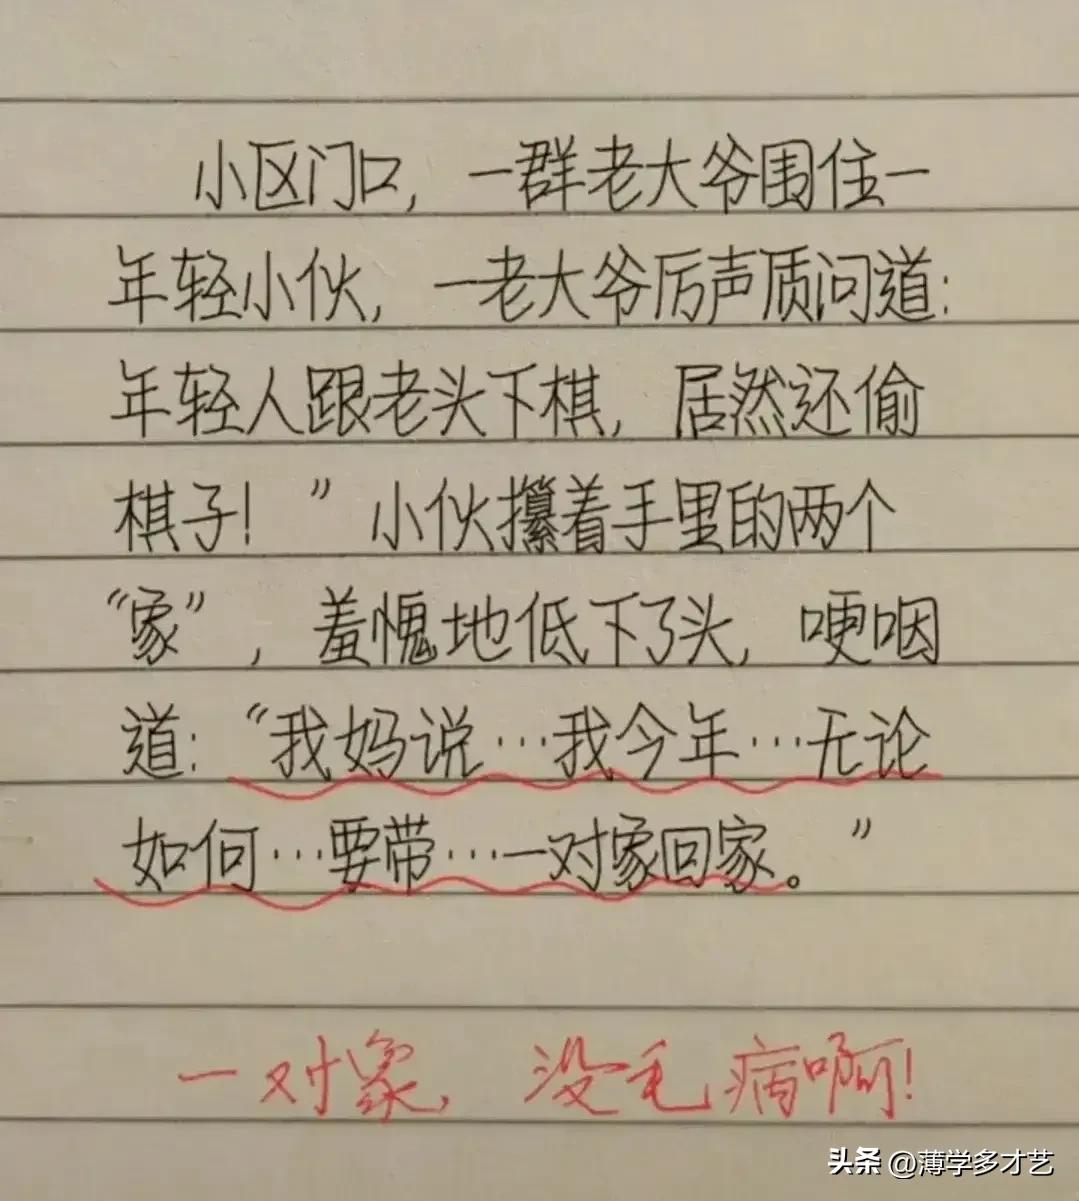 小区门口，一群老大爷围住一
年轻小伙，一老大爷厉声质问道：
年轻人跟老头下棋，居然还偷
棋子！”小伙攥着手里的两个
“象”，羞愧地低下了头，哽咽
道：“我妈说…我今年…无论
如何…要带…一对象回家。”
一对象，没毛病啊！
头条 @薄学多才艺